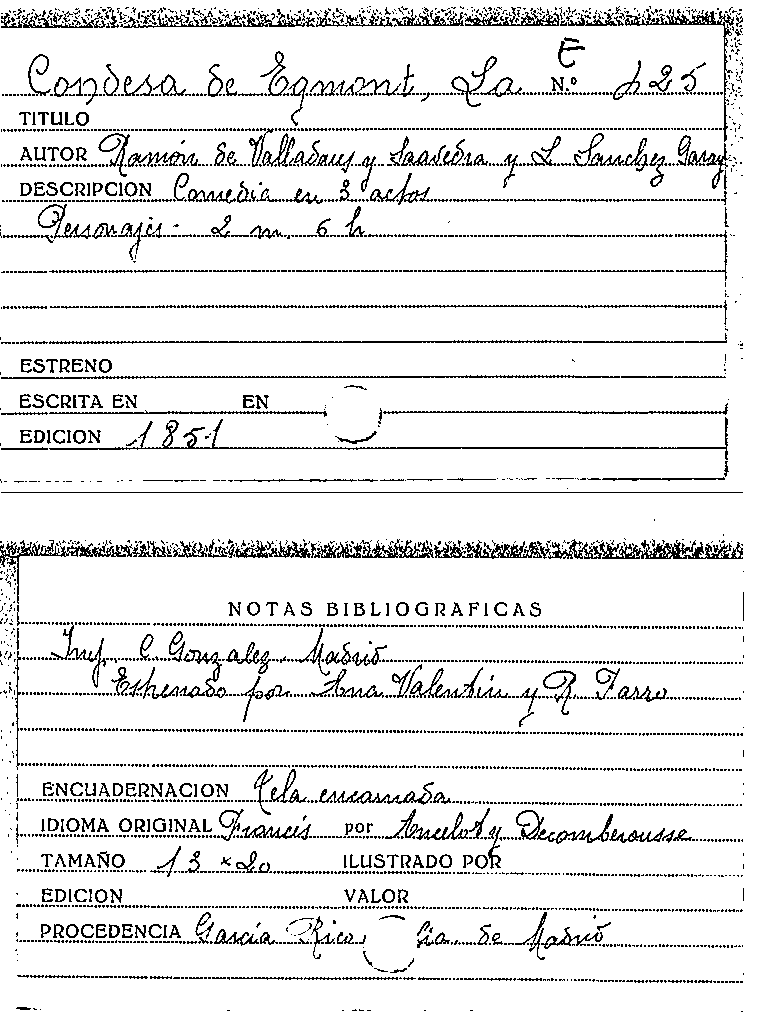 E
Condesa de Egmont, La N.º 125
TITULO
AUTOR Ramón de Valladares y Saavedra y L Sanchez Garay
DESCRIPCION Comedia en 3 actos
Personajes - 2 m. 6 h
ESTRENO
ESCRITA EN EN
EDICION 1851
NOTAS BIBLIOGRAFICAS
Imp. C. Gonzalez. Madrid
Estrenado por Ana Valentin y R. Farro
ENCUADERNACION Tela encarnada
IDIOMA ORIGINAL Francés por Ancelot y Decomberousse
TAMAÑO 13 x 20 ILUSTRADO POR
EDICION VALOR
PROCEDENCIA García Rico, Cia. de Madrid